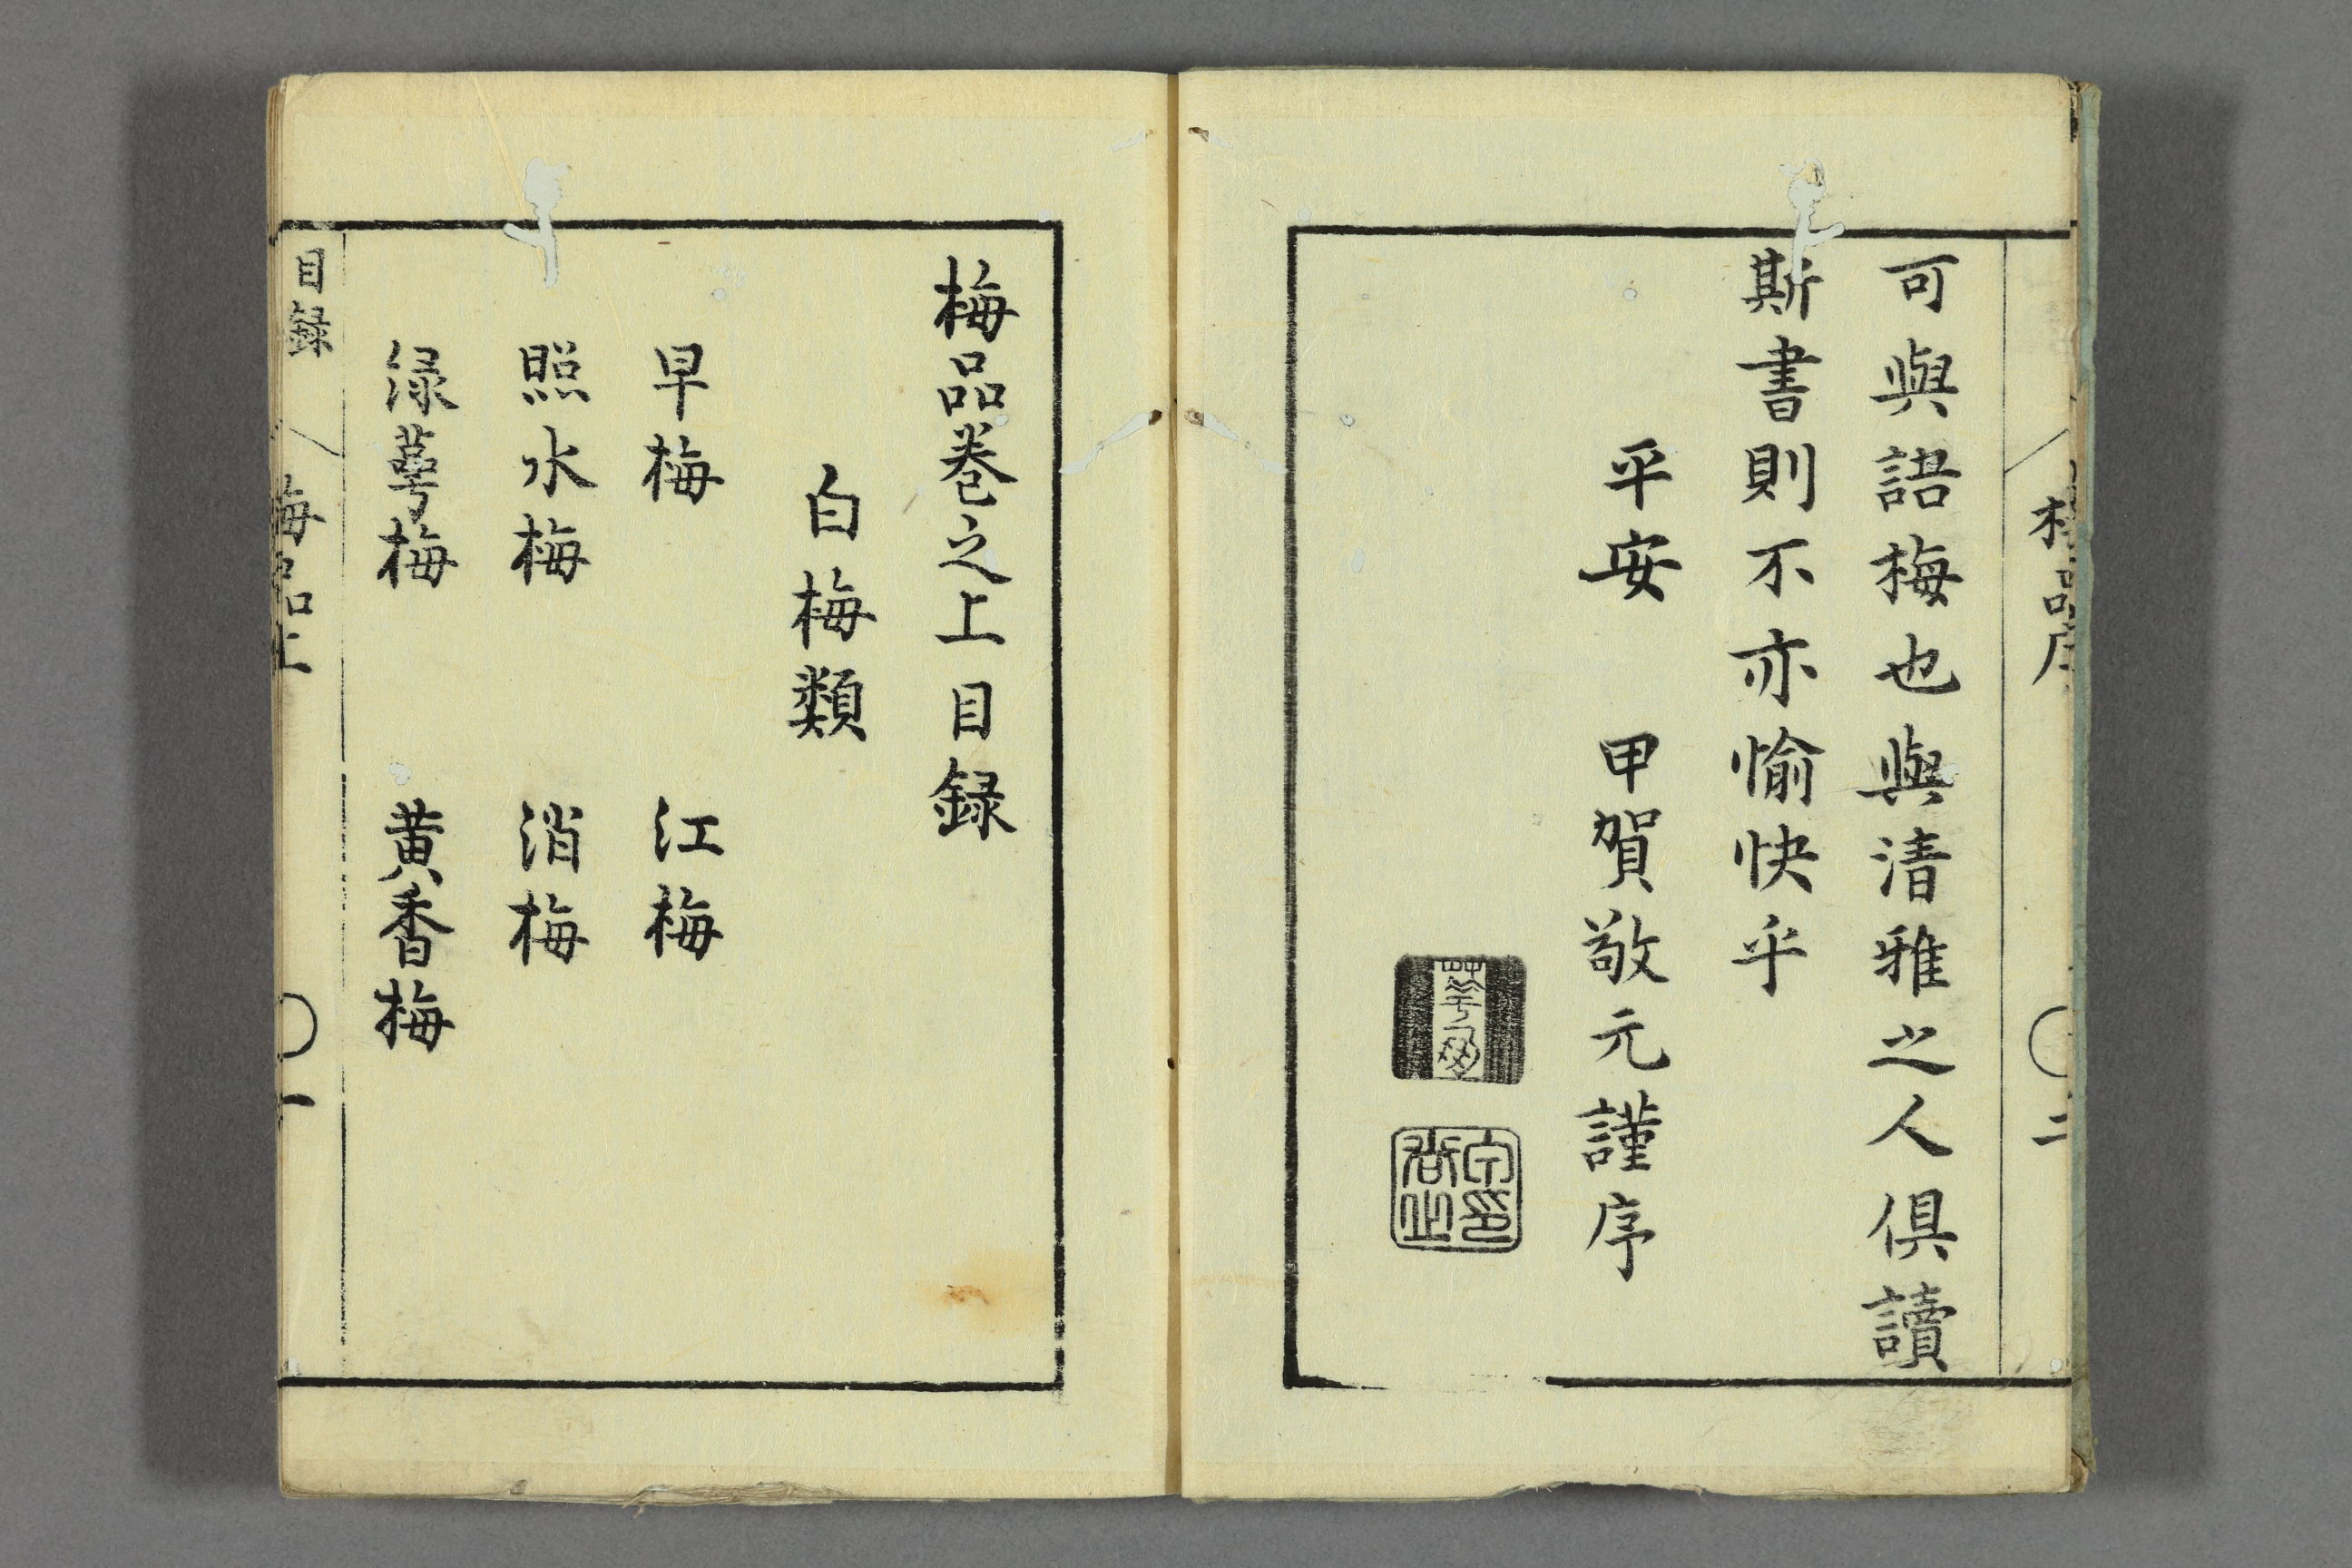 可與語梅也與清雅之人俱讀
斯書則不亦愉快乎
平安 甲賀敬元謹序
梅品序 二
梅品巻之上目録
白梅類
早梅 江梅
照水梅 消梅
渌萼梅 黄香梅
目録 梅品上 一